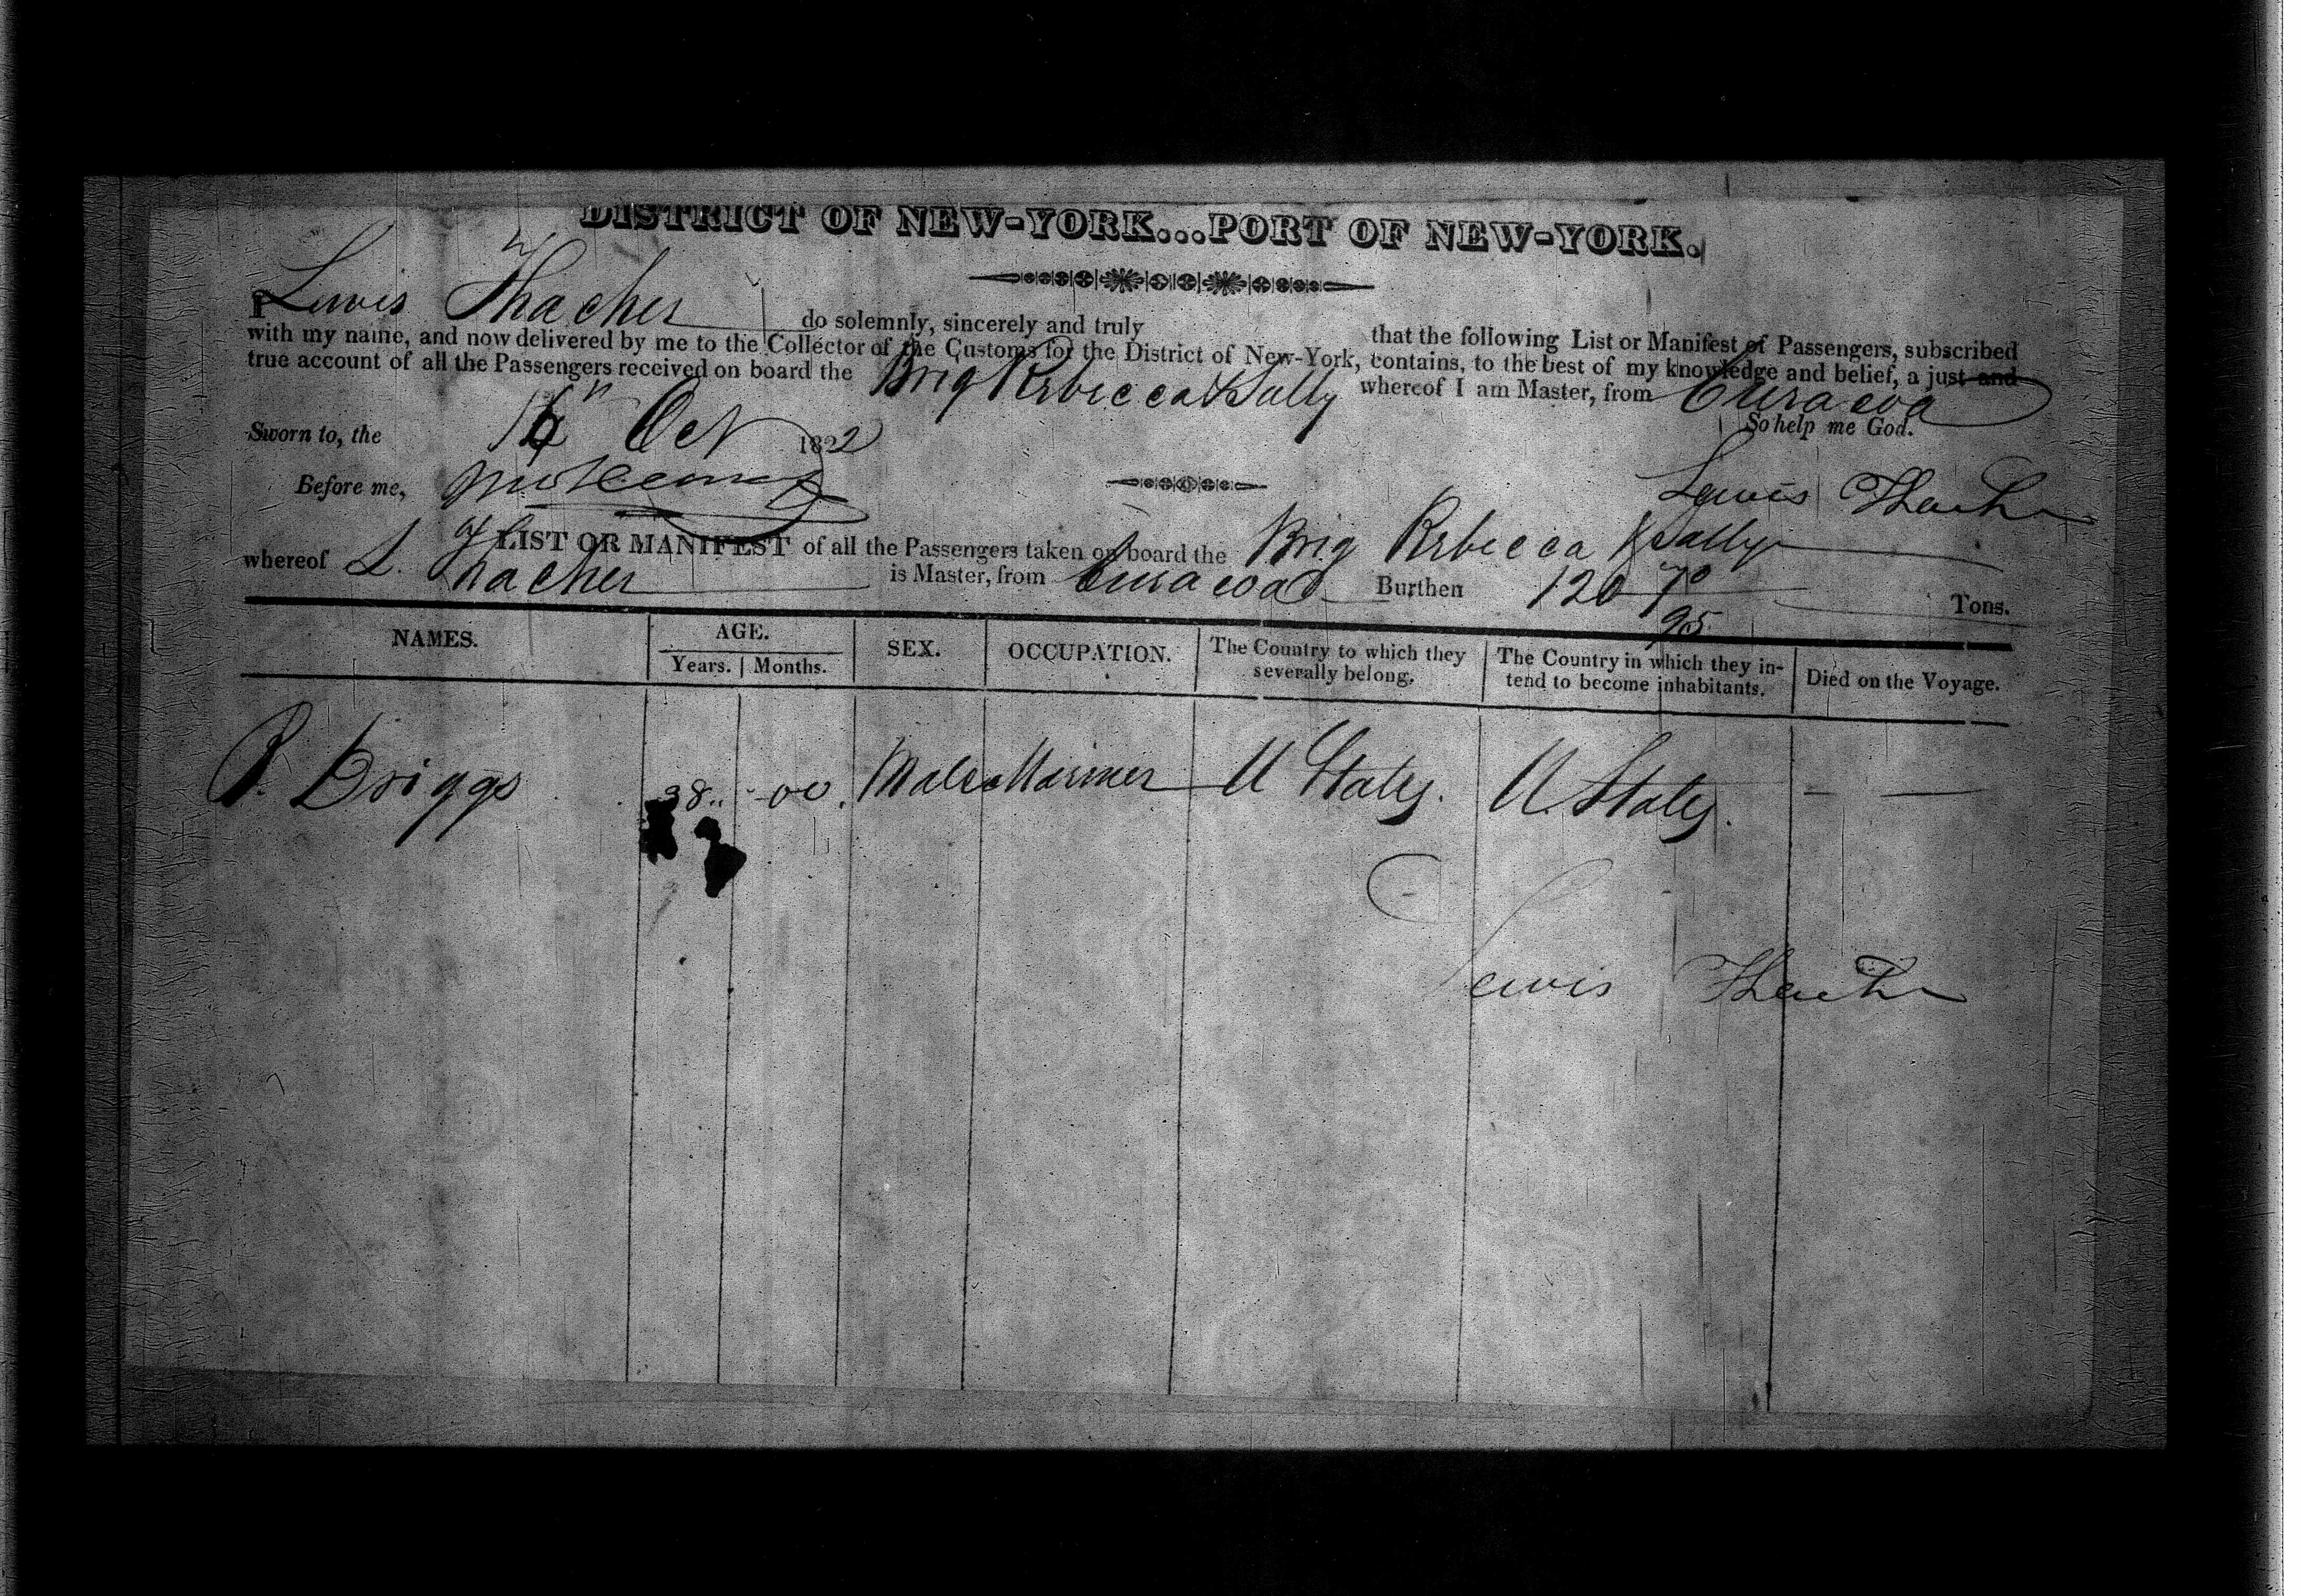 DISTRICT OF NEW-YORK...PORT OF NEW-YORK.
I Lewis Thacher do solemnly, sincerely and truly that the following List or Manifest of Passengers, subscribed
with my name, and now delivered by me to the Collector of the Customs for the District of New-York, contains, to the best of my knowledge and belief, a just and
true account of all the Passengers received on board the Brig Rebecca & Sally whereof I am Master, from Curacoa
So help me God.
Sworn to, the Oct 1822
Before me,
Lewis Thacher
LIST OR MANIFEST of all the Passengers taken on board the Brig Rebecca & Sally
whereof L. Thacher is Master, from Curacoa Burthen 120 70/95 Tons.
NAMES. AGE. SEX. OCCUPATION. The Country to which they severally belong. The Country in which they intend to become inhabitants. Died on the Voyage.
Years. Months.
P. Briggs 38 00 Male Mariner U States. U. States. — —
Lewis Thacher